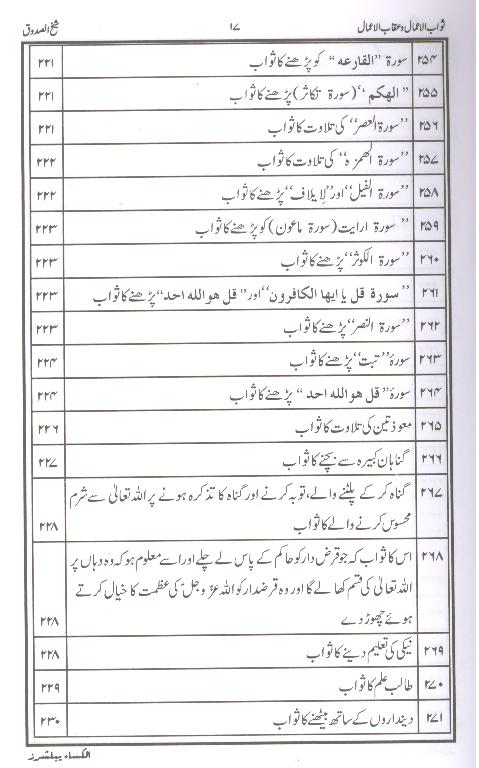 ثواب الاعمال و عقاب الاعمال ۱۷ شیخ الصدوق
۲۵۴ سورۃ "القارعه" کو پڑھنے کا ثواب ۲۲۱
۲۵۵ "الهٰکم" (سورۃ تکاثر) پڑھنے کا ثواب ۲۲۱
۲۵۶ "سورۃ العصر" کی تلاوت کا ثواب ۲۲۱
۲۵۷ "سورۃ الھمزہ" کی تلاوت کا ثواب ۲۲۲
۲۵۸ "سورۃ الفیل" اور "لإیلاف" پڑھنے کا ثواب ۲۲۲
۲۵۹ "سورۃ ارایت (سورۃ ماعون) کو پڑھنے کا ثواب ۲۲۳
۲۶۰ "سورۃ الکوثر" پڑھنے کا ثواب ۲۲۳
۲۶۱ "سورۃ قل یا ایها الکافرون" اور "قل هو الله احد" پڑھنے کا ثواب ۲۲۳
۲۶۲ "سورۃ النصر" پڑھنے کا ثواب ۲۲۳
۲۶۳ سورۂ "تبت" پڑھنے کا ثواب ۲۲۴
۲۶۴ سورۂ "قل هو الله احد" پڑھنے کا ثواب ۲۲۴
۲۶۵ معوذتین کی تلاوت کا ثواب ۲۲۶
۲۶۶ گناہانِ کبیرہ سے بچنے کا ثواب ۲۲۷
۲۶۷ گناہ کر کے پلٹنے والے، توبہ کرنے اور گناہ کا تذکرہ ہونے پر اللہ تعالیٰ سے شرم
محسوس کرنے والے کا ثواب ۲۲۸
۲۶۸ اس کا ثواب کہ جو قرض دار کو حاکم کے پاس لے چلے اور اسے معلوم ہو کہ وہ وہاں پر
اللہ تعالیٰ کی قسم کھا لے گا اور وہ قرضدار کو اللہ عزّوجلّ کی عظمت کا خیال کرتے
ہوئے چھوڑ دے ۲۲۸
۲۶۹ نیکی کی تعلیم دینے کا ثواب ۲۲۸
۲۷۰ طالب علم کا ثواب ۲۲۹
۲۷۱ دینداروں کے ساتھ بیٹھنے کا ثواب ۲۳۰
الکساء پبلیشرز